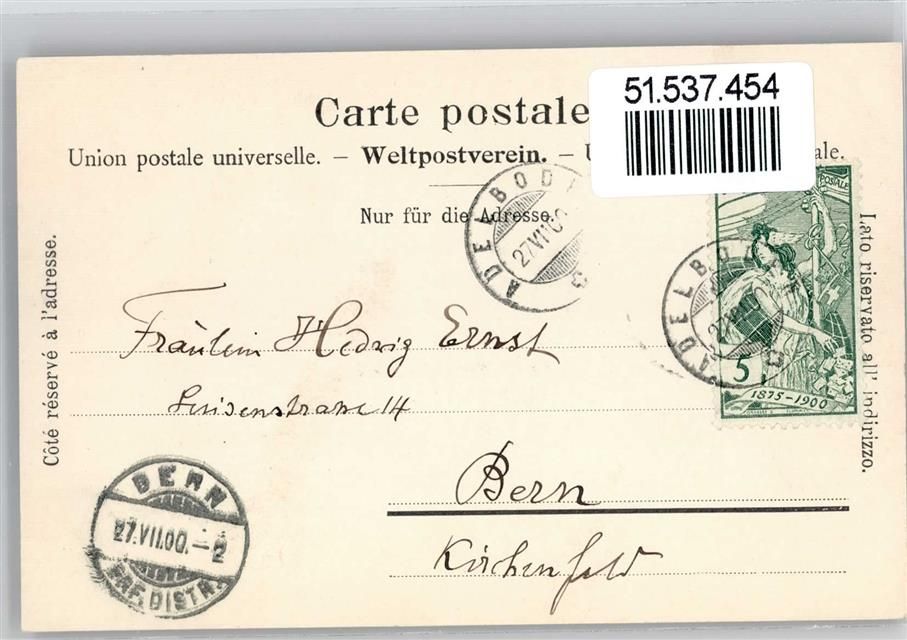 51.537.454
Carte postale
Union postale universelle. – Weltpostverein. –
Nur für die Adresse.
Côté réservé à l'adresse.
Lato riservato all' indirizzo.
ADELBODEN
27.VII.00
POSTALE
ADELBODEN
5
1875–1900
Fräulein Hedwig Ernst
Luisenstrasse 14
Bern
Kirchenfeld
BERN
27.VII.00.–2
BRF.DISTR.